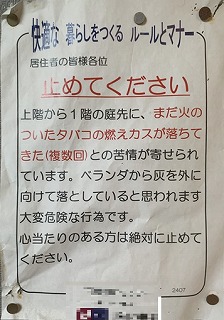 快適な 暮らしをつくる ルールとマナー
居住者の皆様各位
止めてください
上階から1階の庭先に、まだ火の
ついたタバコの燃えカスが落ちて
きた(複数回)との苦情が寄せられ
ています。ベランダから灰を外に
向けて落としていると思われます
大変危険な行為です。
心当たりのある方は絶対に止めて
ください。
2407